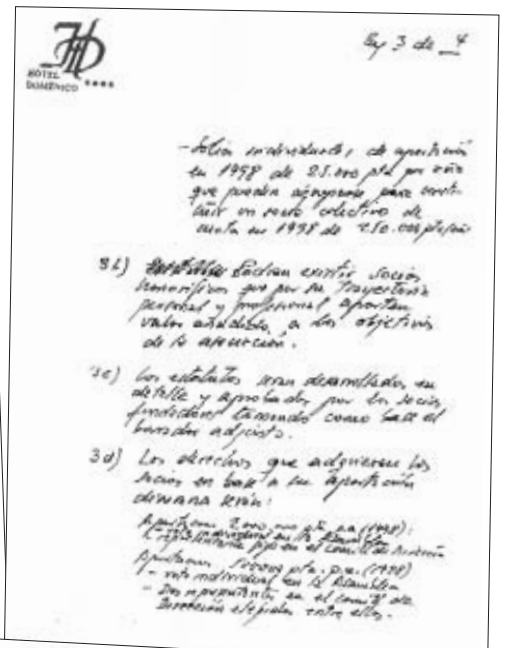 HD
HOTEL
DOMENICO ****
3 de 4
- Socios individuales, de aportación
en 1998 de 25.000 pta por año
que puedan agruparse para consti-
tuir un socio colectivo de
cuota en 1998 de 250.000 ptas/año
3b) Podrían existir socios
honoríficos que por su trayectoria
personal y profesional aportan
valor añadido, a los objetivos
de la asociación.
3c) Los estatutos serán desarrollados en
detalle y aprobados por los socios
fundadores tomando como base el
borrador adjunto.
3d) Los derechos que adquieren los
socios en base a su aportación
serán:
Aportación (1998):
- voto individual en la Asamblea
- representante fijo en el Comité de Dirección
Aportación pta. p.a. (1998)
- voto individual en la Asamblea
- Dos en el comité de
Dirección elegidos entre ellos.